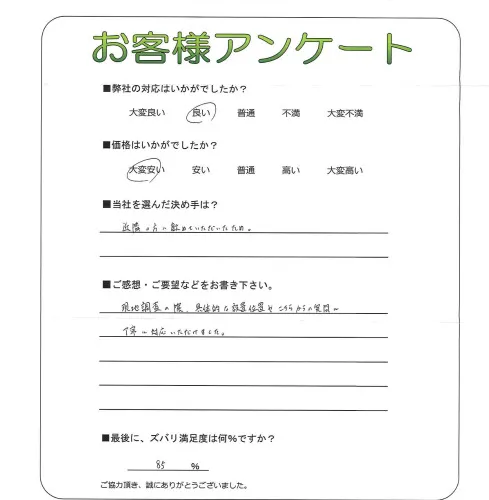 お客様アンケート
■弊社の対応はいかがでしたか？
大変良い 良い 普通 不満 大変不満
■価格はいかがでしたか？
大変安い 安い 普通 高い 大変高い
■当社を選んだ決め手は？
近隣の方に勧めていただいたため。
■ご感想・ご要望などをお書き下さい。
現地調査の際、具体的な設置位置やこちらからの質問に
丁寧に対応いただけました。
■最後に、ズバリ満足度は何%ですか？
85 %
ご協力頂き、誠にありがとうございました。